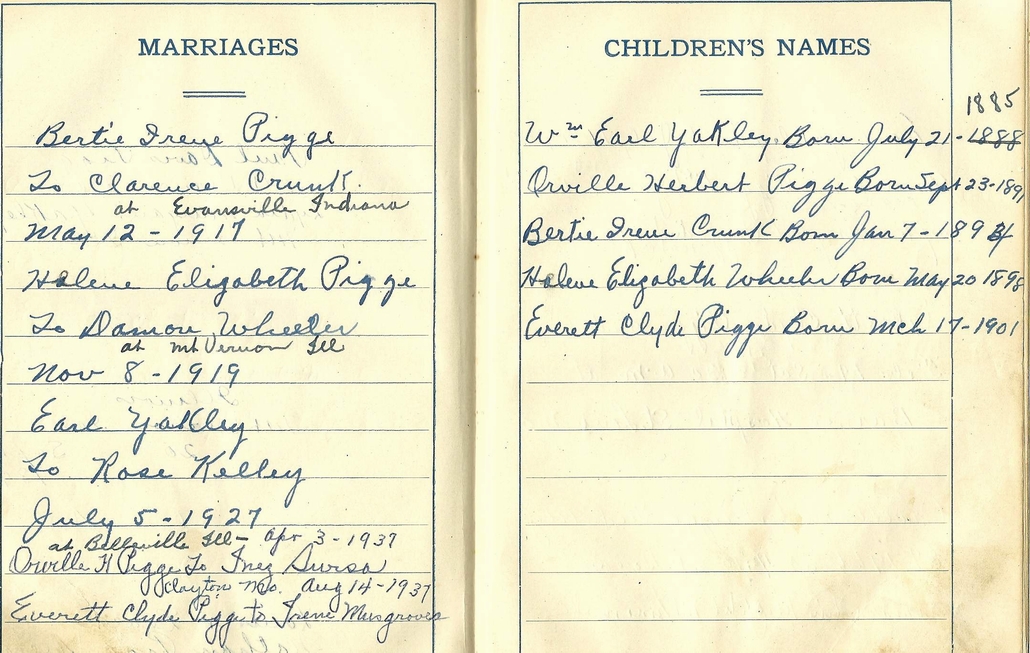 MARRIAGES
Bertie Irene Pigge
To Clarence Crunk.
at Evansville Indiana
May 12 - 1917
Helene Elizabeth Pigge
To Damon Wheeler
at Mt Vernon Ill
Nov 8 - 1919
Earl Yakley
To Rose Kelley
July 5 - 1927
at Belleville Ill - Apr 3 - 1937
Orville H Pigge To Inez
Clayton Mo. Aug 14 - 1937
Everett Clyde Pigge to Irene Musgroves
CHILDREN'S NAMES
1885
Wm Earl Yakley. Born July 21 - 1888
Orville Herbert Pigge Born Sept 23 - 189
Bertie Irene Crunk Born Jan 7 - 189
Helene Elizabeth Wheeler Born May 20 1898
Everett Clyde Pigge Born Mch 17 - 1901